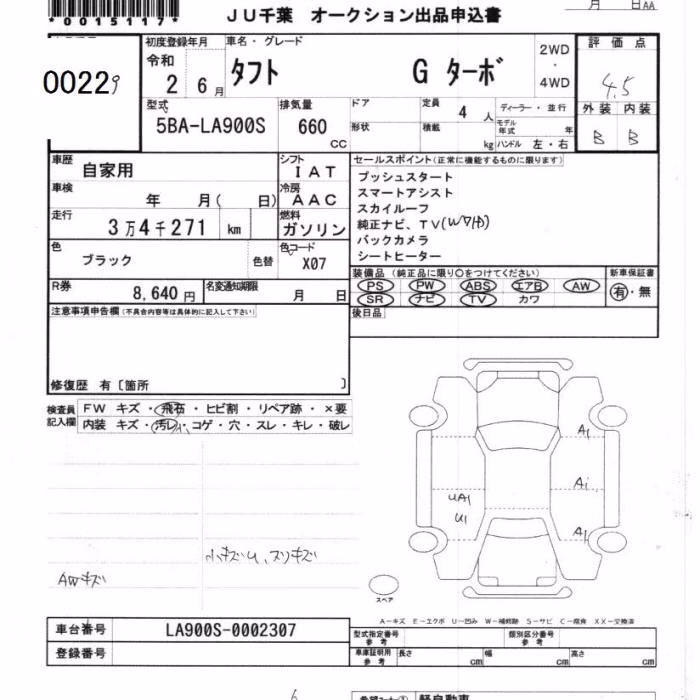 *0015117*
JU千葉 オークション出品申込書
月 日AA
00229
初度登録年月
令和
2 6月
車名・グレード
タフト G ターボ
2WD
・
4WD
評価点
4.5
外装 内装
B B
型式
5BA-LA900S
排気量
660
CC
ドア
形状
定員
4 人
積載
kg
ディーラー・並行
モデル年式 年
ハンドル 左・右
車歴
自家用
シフト
IAT
車検
年 月( 日)
冷房
AAC
走行
3万4千271 km
燃料
ガソリン
色
ブラック
色替
色コード
X07
R券
8,640円
名変通知期限
月 日
セールスポイント(正常に機能するものに限ります)
プッシュスタート
スマートアシスト
スカイルーフ
純正ナビ、TV(Wｱﾙ)
バックカメラ
シートヒーター
装備品 (純正品に限り○をつけてください)
PS PW ABS エアB AW
SR ナビ TV カワ
新車保証書
有・無
後日品
注意事項申告欄(不具合内容等は具体的に記入して下さい)
修復歴 有〔箇所 〕
検査員記入欄
FW キズ・飛石・ヒビ割・リペア跡・×要
内装 キズ・汚レ・コゲ・穴・スレ・キレ・破レ
小キズU、スリキズ
AWキズ
A1
A1
A1
UA1
U1
スペア
A－キズ E－エクボ U－凹み W－補修跡 S－サビ C－腐食 XX－交換済
車台番号
LA900S-0002307
登録番号
型式指定番号
参考
類別区分番号
参考
車庫証明用
参考
長さ cm
幅 cm
高さ cm
軽自動車